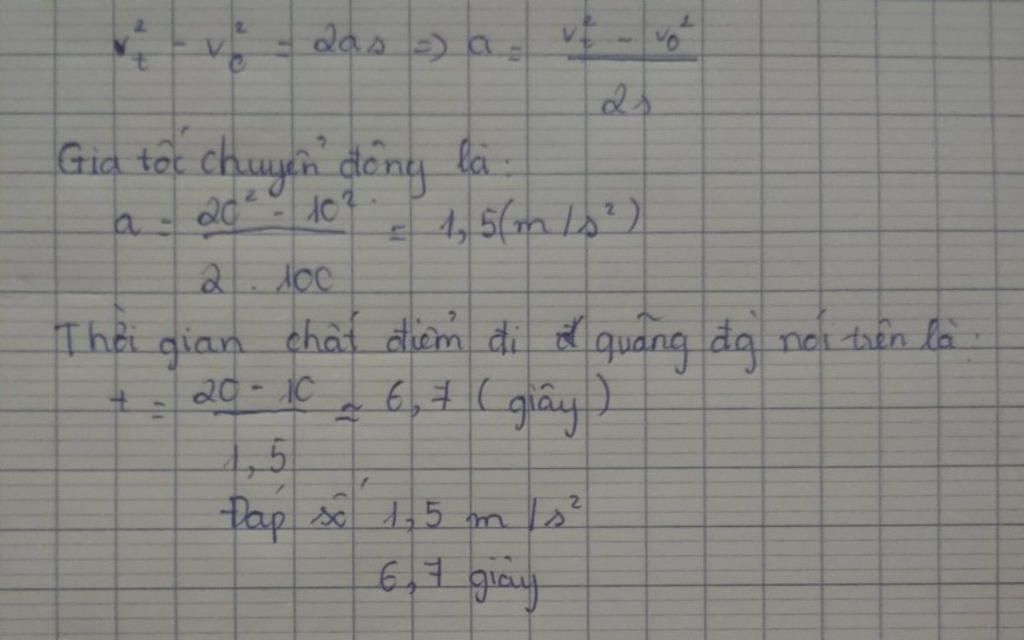 v_t² - v_0² = 2as => a = (v_t² - v_0²) / 2s
Gia tốc chuyển động là:
a = (20² - 10²) / (2 . 100) = 1,5(m/s²)
Thời gian chất điểm đi quãng đg nói trên là:
t = (20 - 10) / 1,5 ≈ 6,7 (giây)
Đáp số 1,5 m/s²
6,7 giây